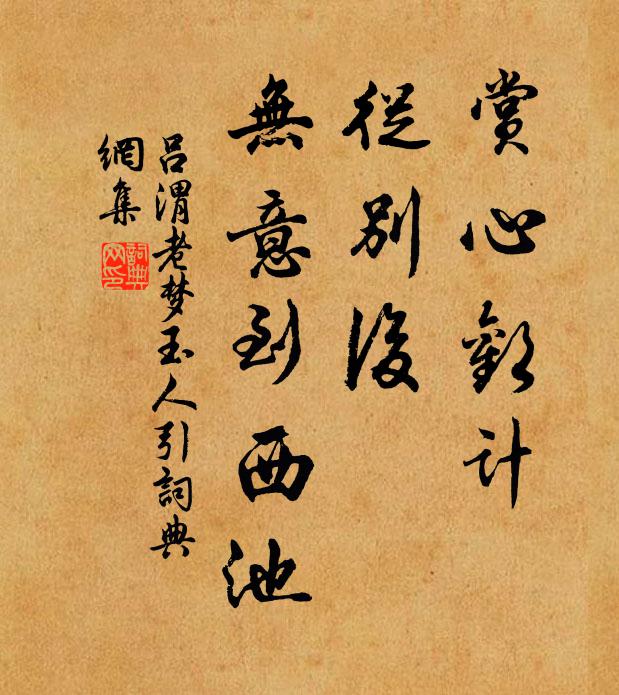 賞心歡计
從別後
無意到西池
吕渭老梦玉人引詞典
網集
詞典
网印